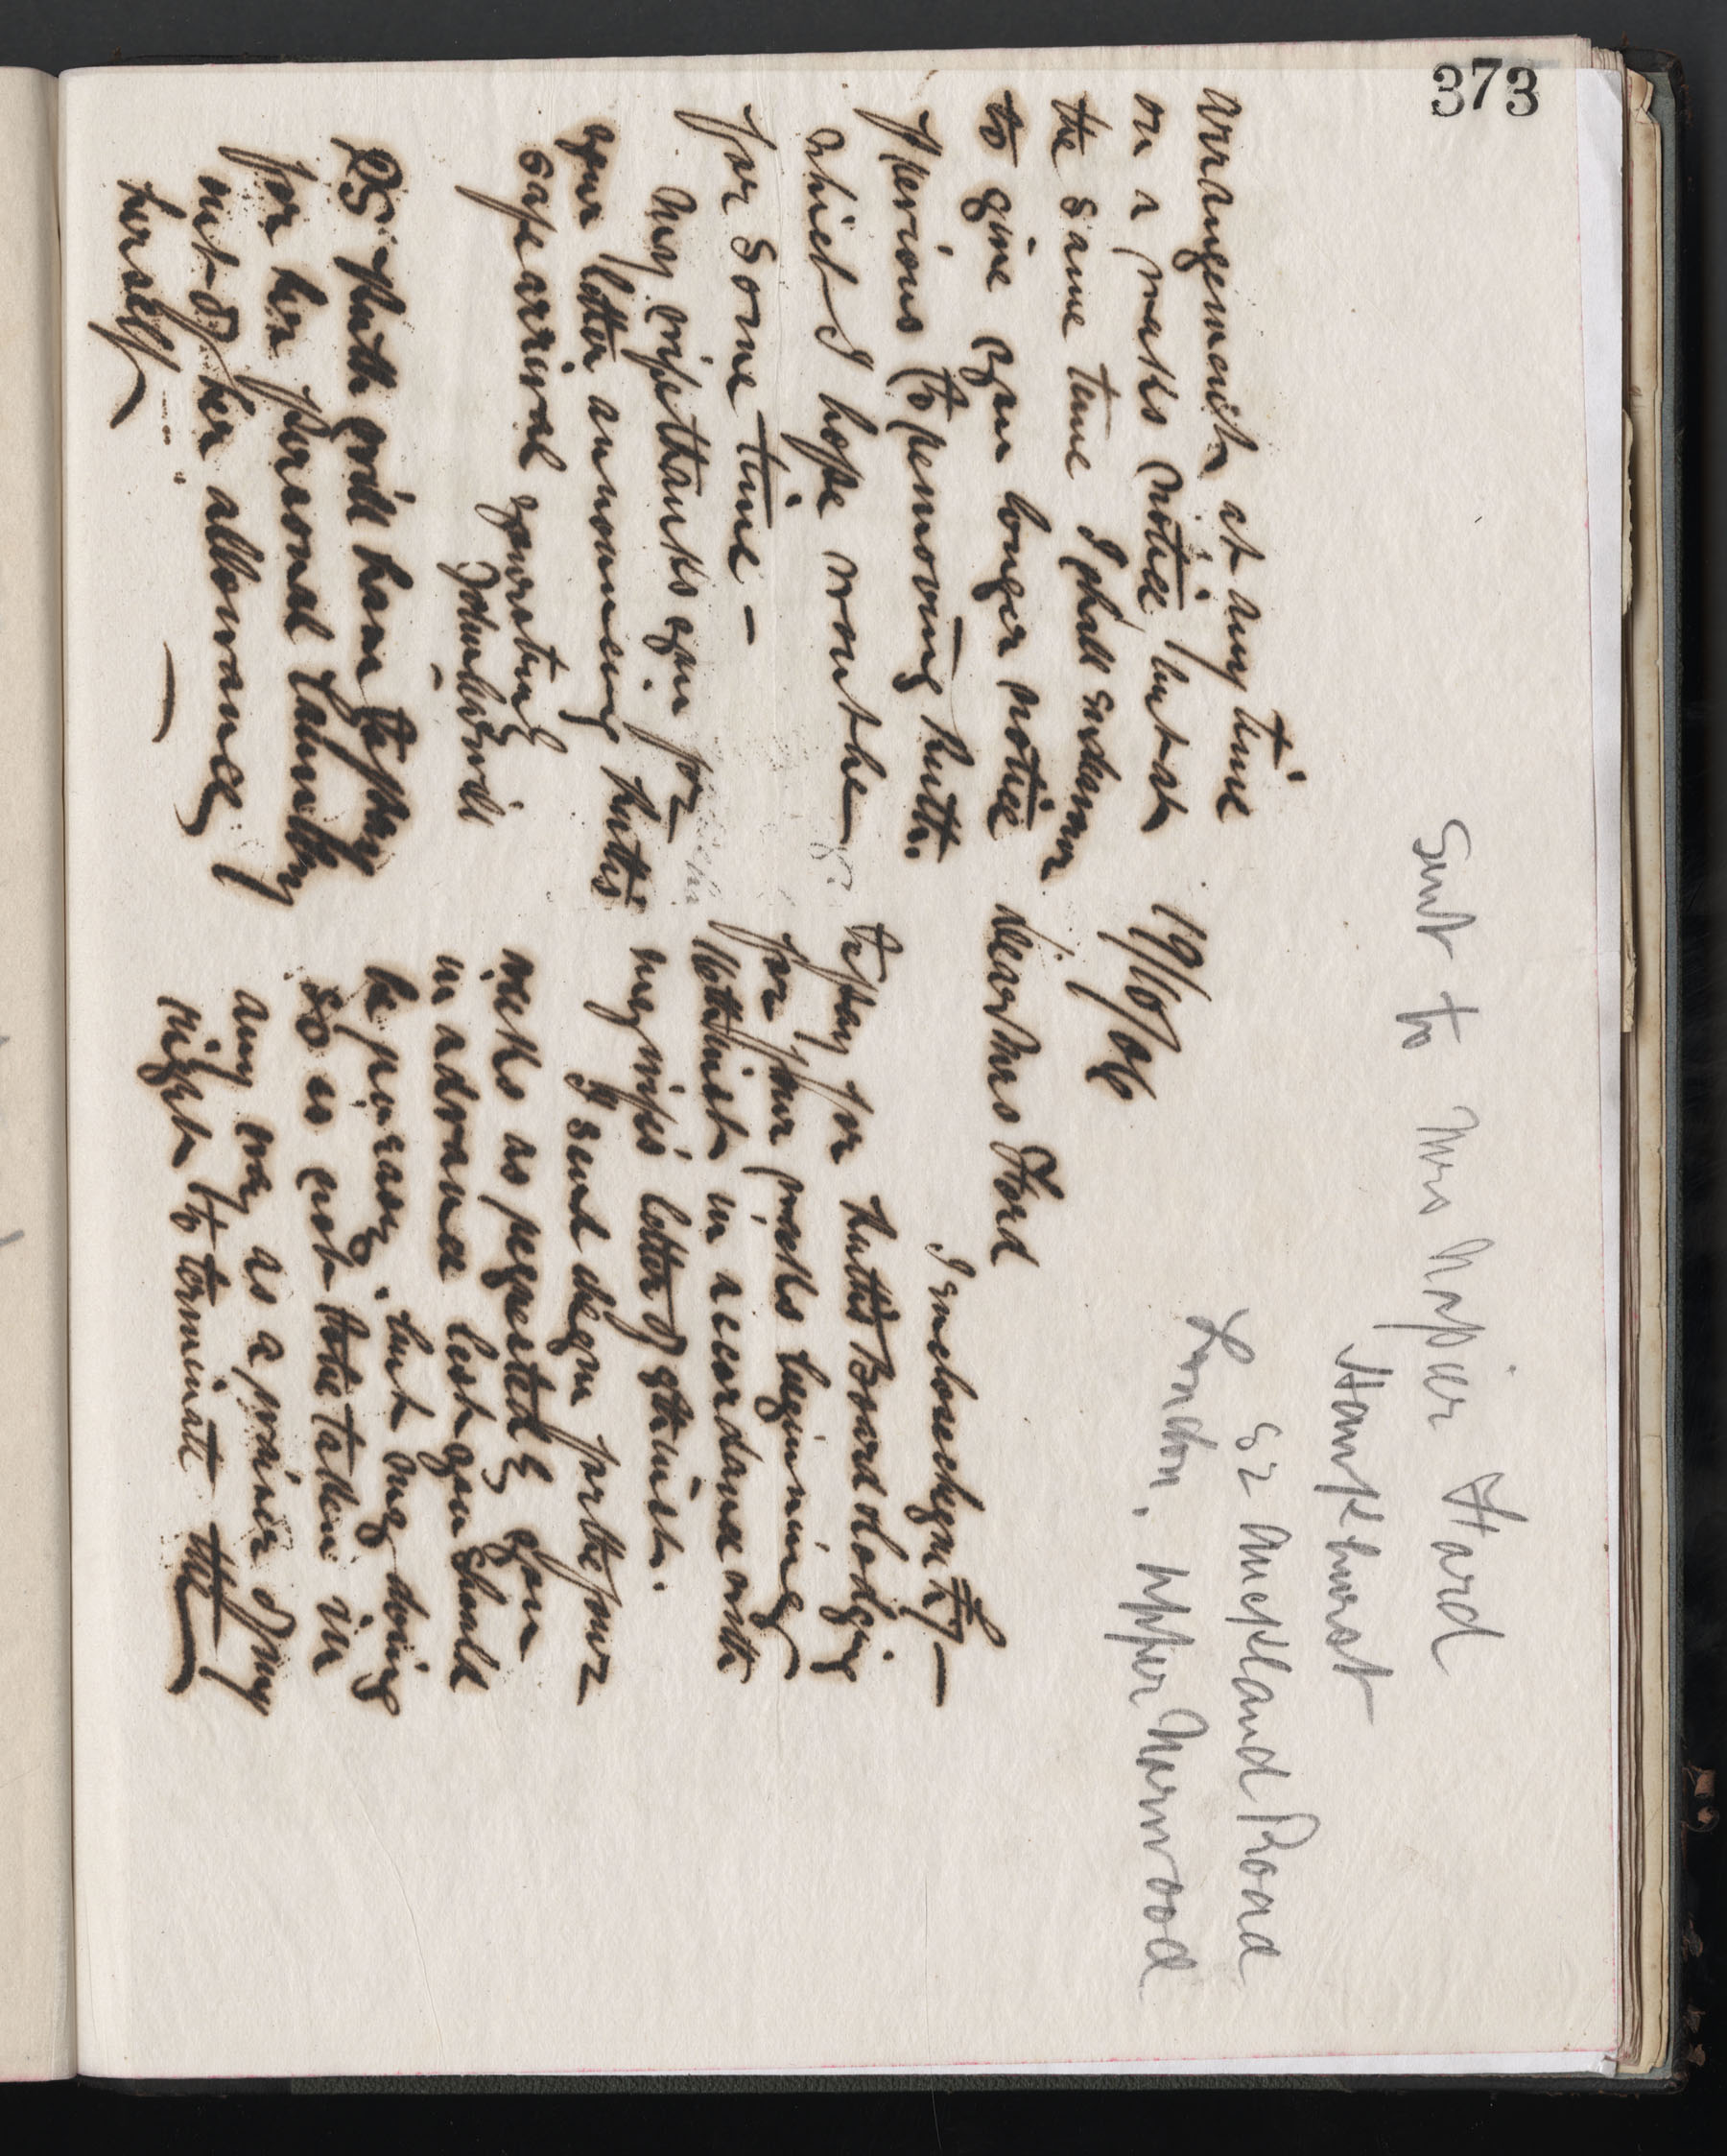 373
Sent to Mrs Napier Ford
Hawkhurst
52 Auckland Road
London, Upper Norwood
19/10/06
Dear Mrs Ford
I enclose chque £7—
to pay for Ruth's Board & lodging
for four weeks beginning
16th inst in accordance with
my wife's letter of 9th inst.
I send cheque for the four
weeks as requested by you
in advance lest you should
be pinrason, but my doing
so is not to be taken in
any way as a waiver of my
right to terminate the
arrangement at any time
on a weeks notice, but at
the same time I shall endeavour
to give you longer notice
previous to removing Ruth.
which I hope won't be
for some time —
My wife thanks you for
your letter announcing Ruth's
safe arrival yours truly
John H
PS. Ruth will have to pay
for her personal laundry
out of her allowance
herself